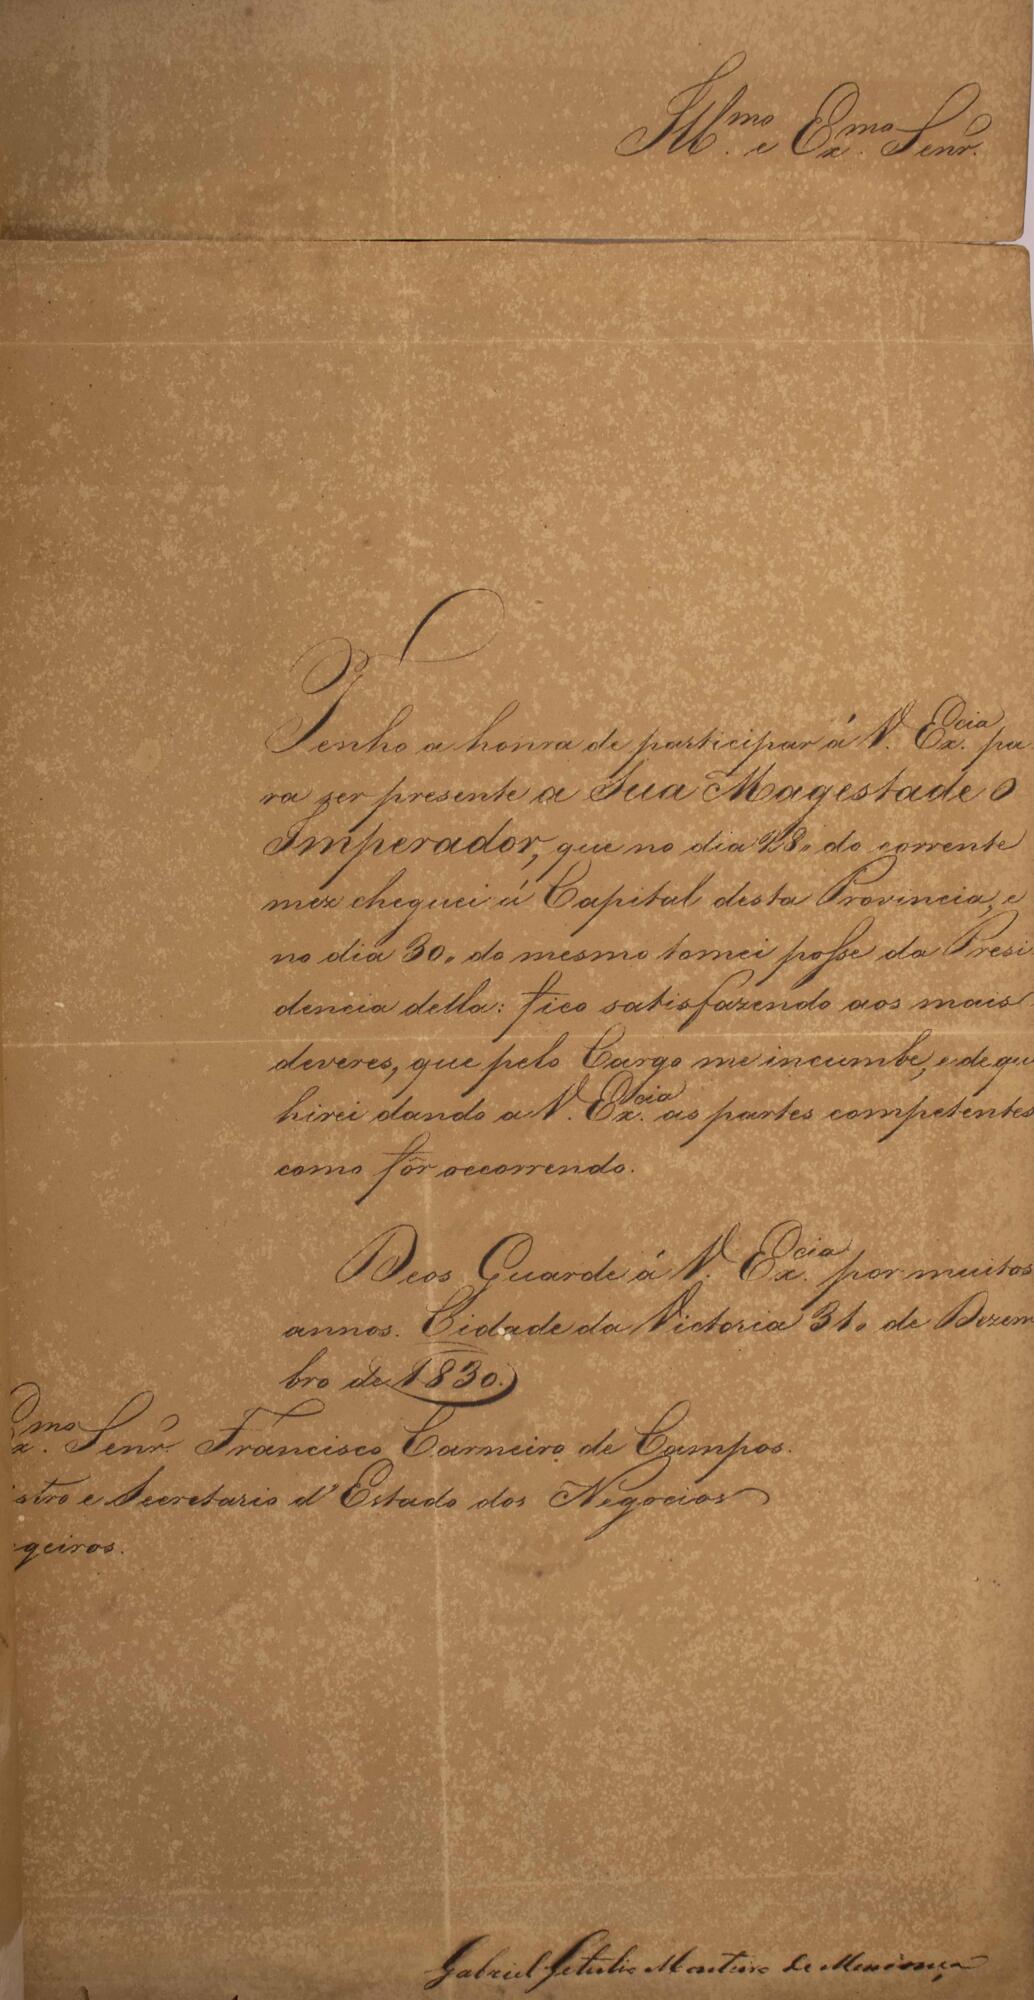 Illmo. e Exmo. Senr.
Tenho a honra de participar á V. Excia. pa
ra ser presente a Sua Magestade O
Imperador, que no dia 28. do corrente
mez cheguei á Capital desta Provincia, e
no dia 30. do mesmo tomei posse da Presi
dencia della: fico satisfazendo aos mais
deveres, que pelo Cargo me incumbe, e de qu
hirei dando a V. Excia. as partes competentes
como fôr occorrendo.
Deos Guarde á V. Excia. por muitos
annos. Cidade da Victoria 31. de Dezem
bro de 1830.
xmo. Senr. Francisco Carneiro de Campos.
istro e Secretario d'Estado dos Negocios
geiros.
Gabriel Getulio Monteiro de Mendonça